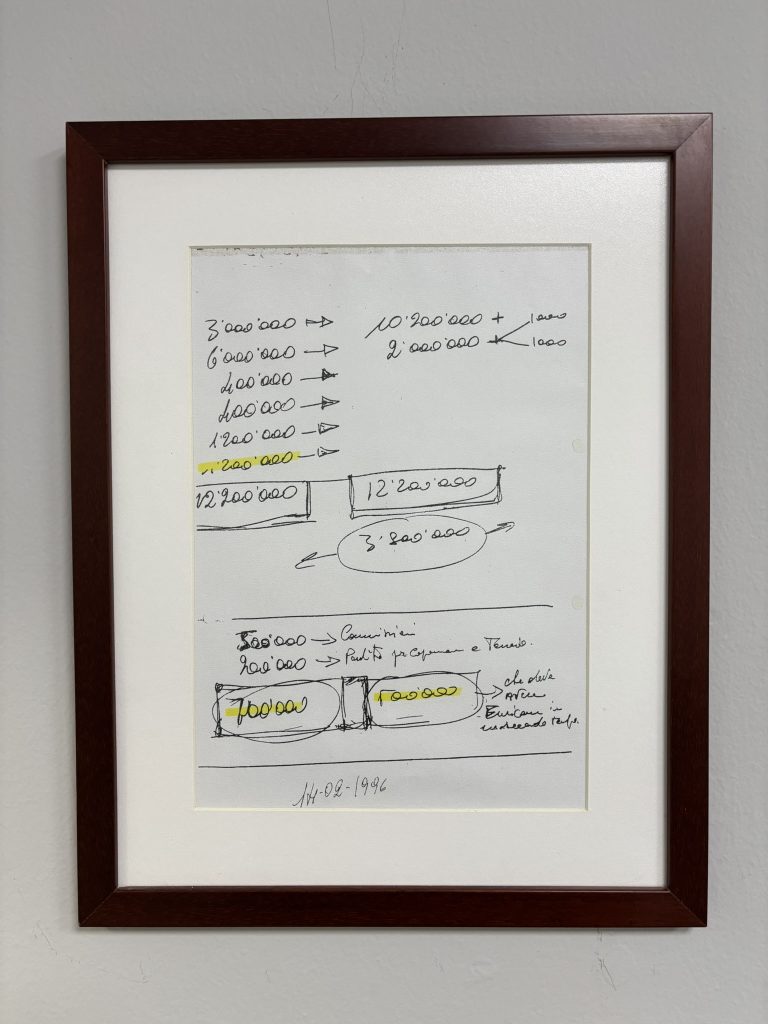 3'000'000
10'200'000 + 1000
6'000'000
2'000'000 + 1000
400'000
400'000
1'200'000
1'200'000
12'200'000
12'200'000
3'800'000
500'000 → Commissioni
200'000 → e
700'000
che deve
avere
in
14-02-1996